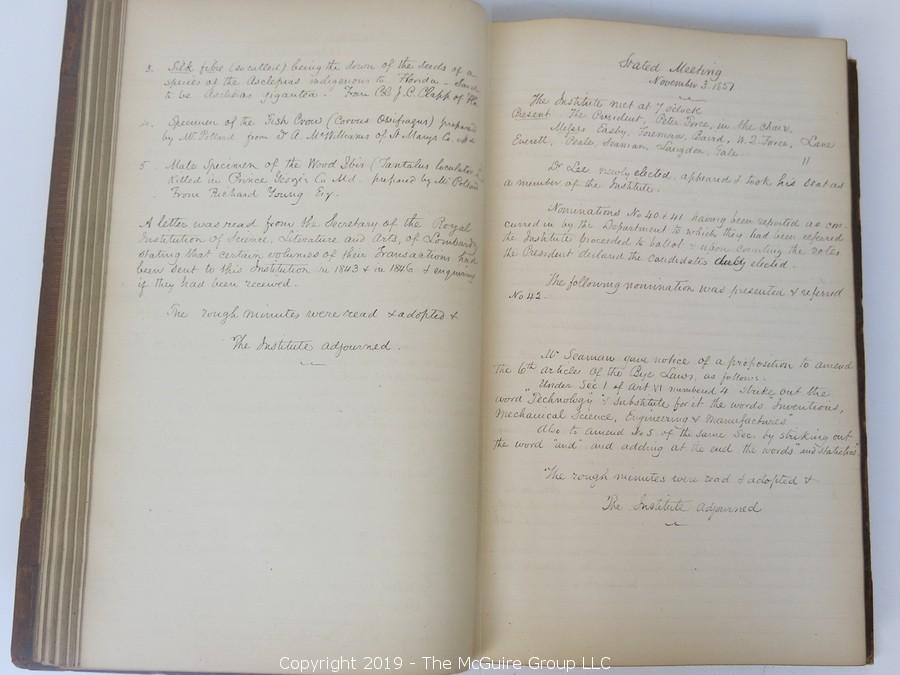 3. Silk fibre (so called) being the down of the seeds of a
species of the Asclepias indigenous to Florida -
to be Asclepias gigantea. From Col J. C. Clapp of Fla
4. Specimen of the Fish Crow (Corvus Ossifragus) prepared
by Mr Pollard from D A. McWilliams of St Marys Co.
5 Male Specimen of the Wood Ibis (Tantalus loculator
Killed in Prince George's Co Md. prepared by Mr Pollard
From Richard Young Esq.
A letter was read from the Secretary of the Royal
Institution of Science, Literature and Arts, of Lombardy
stating that certain volumes of their Transactions had
been sent to this Institution in 1843 & in 1846 & enquiring
if they had been received.
The rough minutes were read & adopted &
The Institute adjourned.
Stated Meeting
November 3. 1857
The Institute met at 7 o'clock
Present The President, Peter Force, in the chair,
Messrs Easby, Foreman, Baird, W. Q. Force, Lane
Everett, Peale, Seaman, Langdon, Gale. "
Dr Lee newly elected, appeared & took his seat as
a member of the Institute.
Nominations No 40 & 41 having been reported as con-
curred in by the Department to which they had been referred
the Institute proceeded to ballot & upon counting the votes
the President declared the candidates duly elected.
The following nomination was presented & referred
No 42.
Mr Seaman gave notice of a proposition to amend
the 6th articles of the Bye Laws, as follows.
"Under Sec 1. of Art VI numberd 4 strike out the
word "Technology" & Substitute for it the words Inventions,
Mechanical Science, Engineering & Manufactures"
Also to amend No 5 of the same Sec. by striking out
the word "and" and adding at the end the words "and Statistics"
The rough minutes were read & adopted &
The Institute adjourned
Copyright 2019 - The McGuire Group LLC